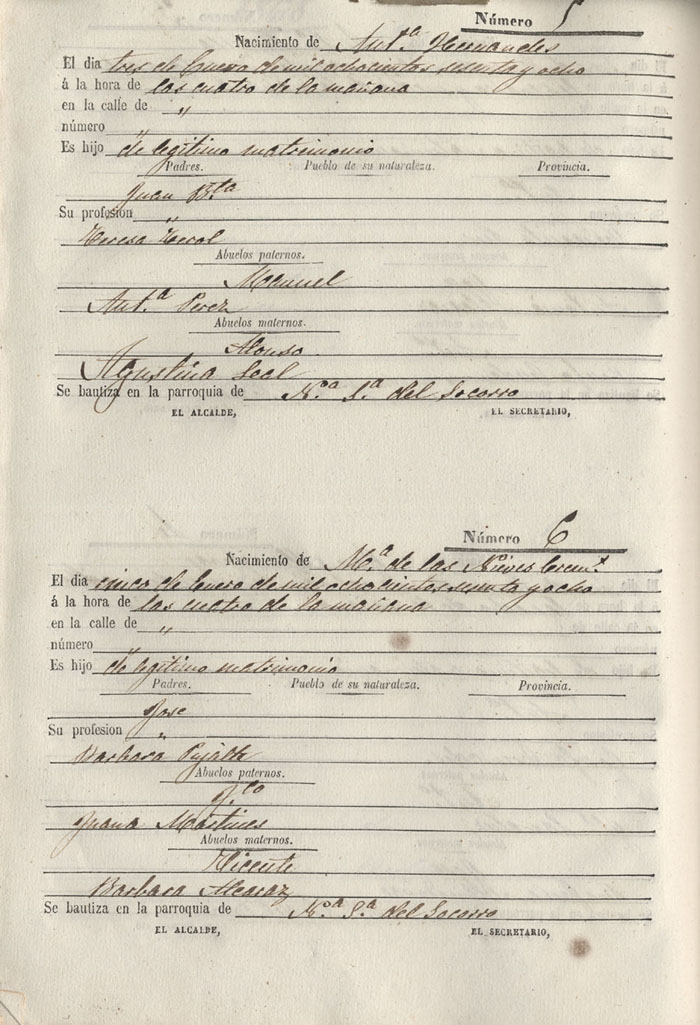 Número 5
Nacimiento de Ant.ª Hernandes
El dia tres de Enero de mil ochocientos sesenta y ocho
á la hora de las cuatro de la mañana
en la calle de "
número "
Es hijo de legitimo matrimonio
Padres. Pueblo de su naturaleza. Provincia.
Juan B.ta
Su profesion "
Teresa
Abuelos paternos.
Manuel
Ant.ª Perez
Abuelos maternos.
Alonso
Agustina Leal
Se bautiza en la parroquia de N.ª S.ª del Socorro
EL ALCALDE, EL SECRETARIO,
Número 6
Nacimiento de M.ª de las Nieves
El dia cinco de Enero de mil ochocientos sesenta y ocho
á la hora de las cuatro de la mañana
en la calle de "
número "
Es hijo de legitimo matrimonio
Padres. Pueblo de su naturaleza. Provincia.
Jose
Su profesion "
Barbara Pujalte
Abuelos paternos.
J.co
Juana Martines
Abuelos maternos.
Vicente
Barbara Alcaraz
Se bautiza en la parroquia de N.ª S.ª del Socorro
EL ALCALDE, EL SECRETARIO,